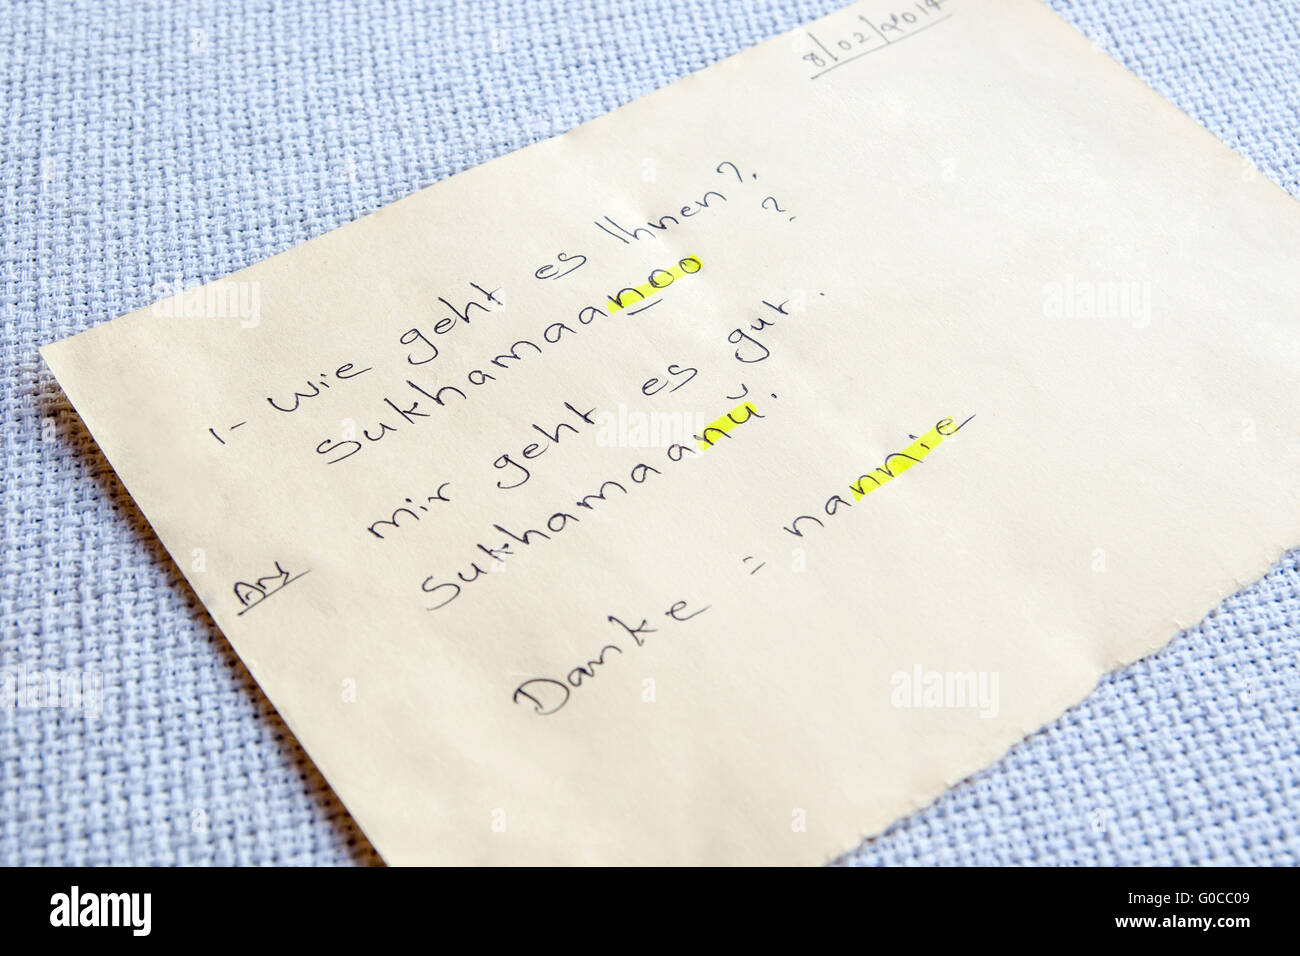 8/02/2014
1- Wie geht es Ihnen?
Sukhamaanoo ?
Ans mir geht es gut.
Sukhamaanŭ.
Danke = nannie
alamy
a
alamy stock photo
G0CC09
www.alamy.com